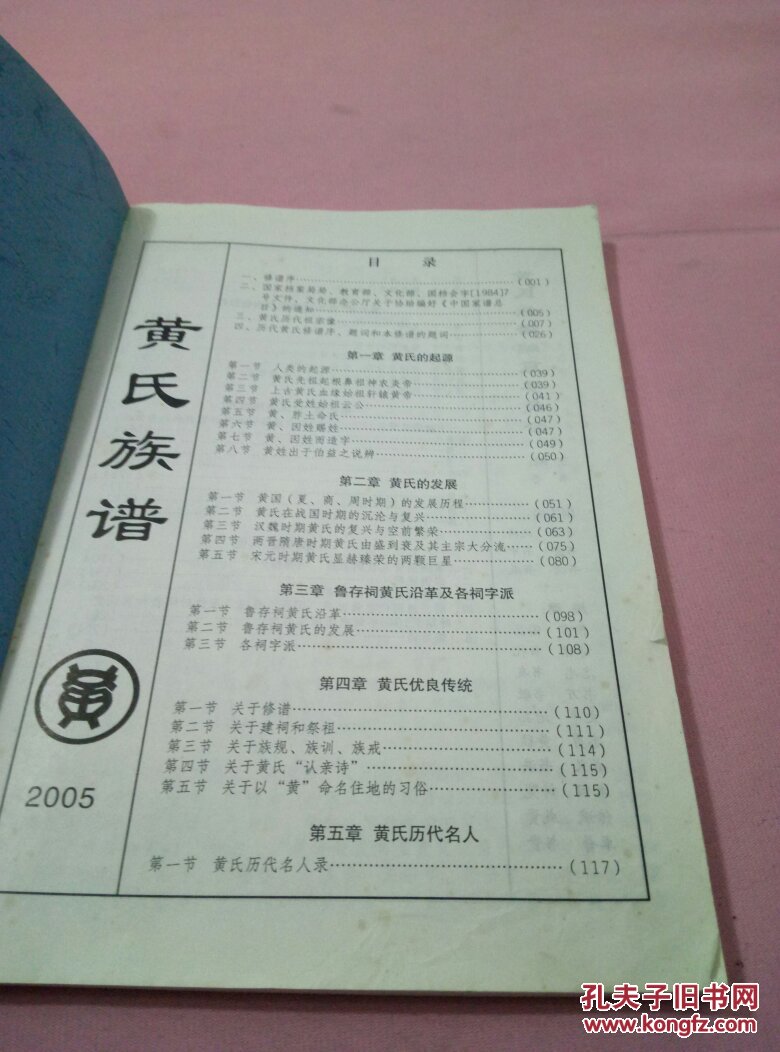 黄氏族谱
黄
2005
目 录
一、修谱序……(001)
二、国家档案局、教育部、文化部、国档会字[1984]7
号文件、文化部办公厅关于协助编好《中国家谱总
目》的通知……(005)
三、黄氏历代祖宗像……(007)
四、历代黄氏修谱序、题词和本修谱的题词……(026)
第一章 黄氏的起源
第一节 人类的起源……(039)
第二节 黄氏先祖起根鼻祖神农炎帝……(039)
第三节 上古黄氏血缘始祖轩辕黄帝……(041)
第四节 黄氏受姓始祖云公……(046)
第五节 黄、胙土命氏……(047)
第六节 黄、因姓赐姓……(047)
第七节 黄、因姓而造字……(049)
第八节 黄姓出于伯益之说辨……(050)
第二章 黄氏的发展
第一节 黄国(夏、商、周时期)的发展历程……(051)
第二节 黄氏在战国时期的沉沦与复兴……(061)
第三节 汉魏时期黄氏的复兴与空前繁荣……(063)
第四节 两晋隋唐时期黄氏由盛到衰及其主宗大分流……(075)
第五节 宋元时期黄氏显赫臻荣的两颗巨星……(080)
第三章 鲁存祠黄氏沿革及各祠字派
第一节 鲁存祠黄氏沿革……(098)
第二节 鲁存祠黄氏的发展……(101)
第三节 各祠字派……(108)
第四章 黄氏优良传统
第一节 关于修谱……(110)
第二节 关于建祠和祭祖……(111)
第三节 关于族规、族训、族戒……(114)
第四节 关于黄氏“认亲诗”……(115)
第五节 关于以“黄”命名住地的习俗……(115)
第五章 黄氏历代名人
第一节 黄氏历代名人录……(117)
孔夫子旧书网
www.kongfz.com